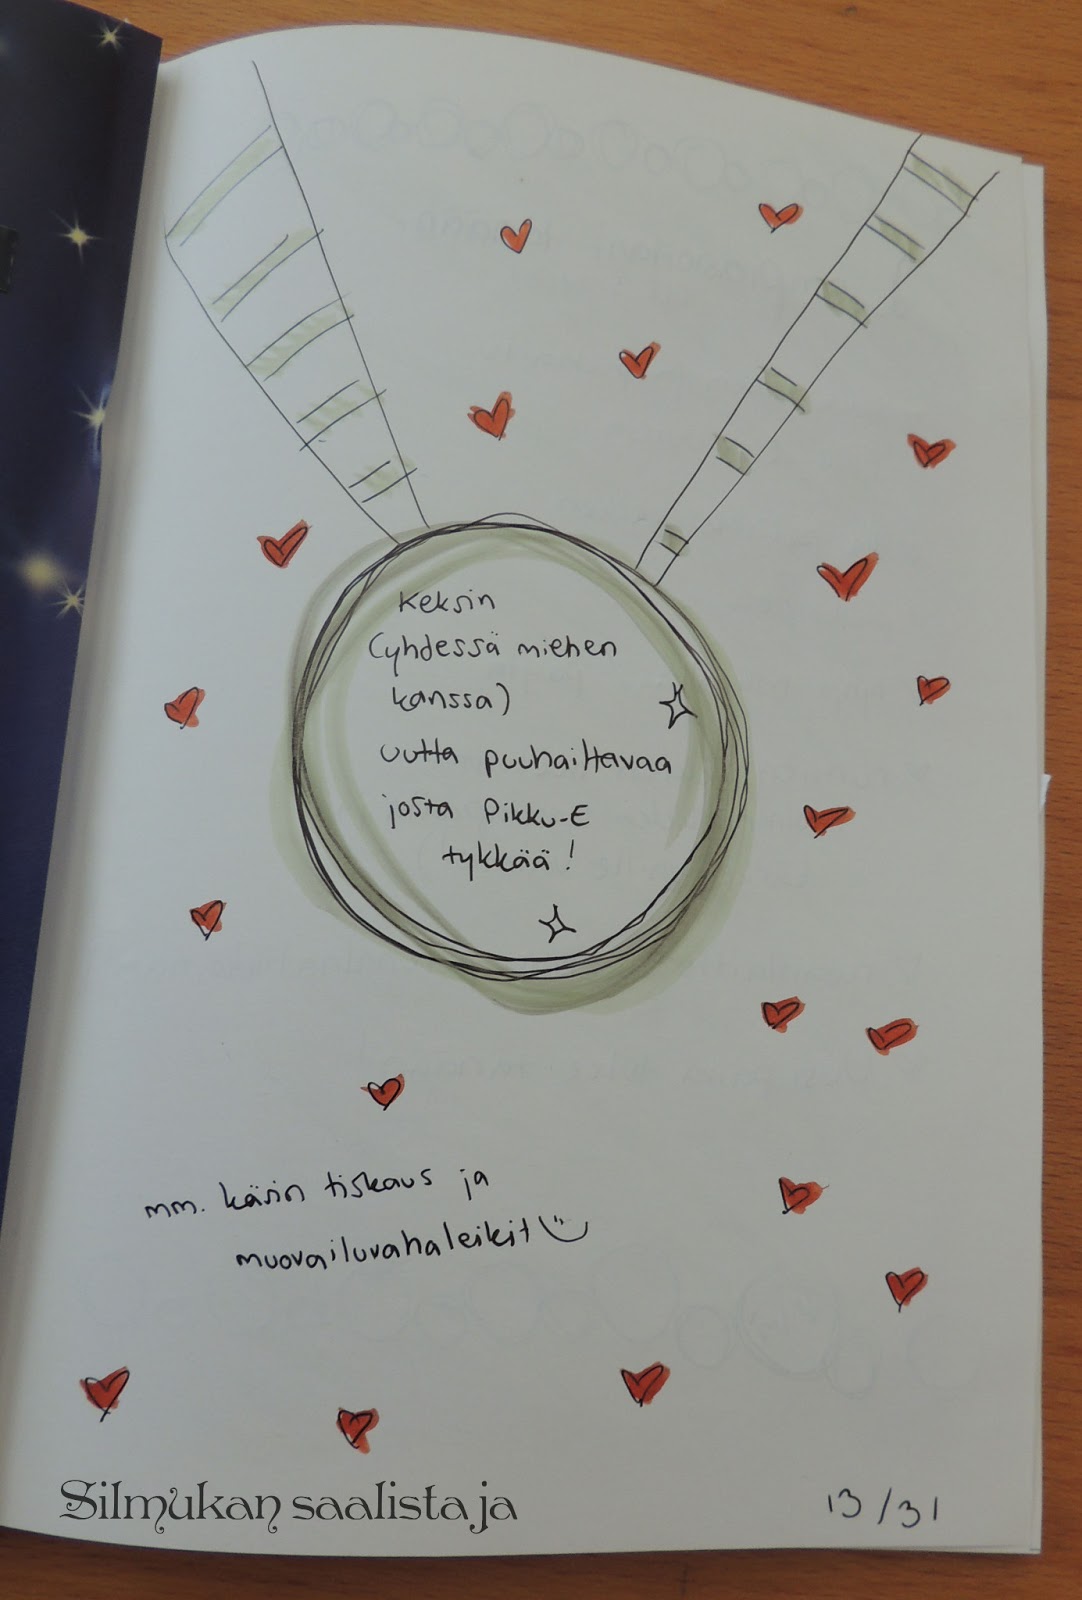 Keksin
(yhdessä miehen
kanssa)
uutta puuhailtavaa
josta Pikku-E
tykkää!
mm. käsin tiskaus ja
muovailuvahaleikit
Silmukan saalistaja
13/31